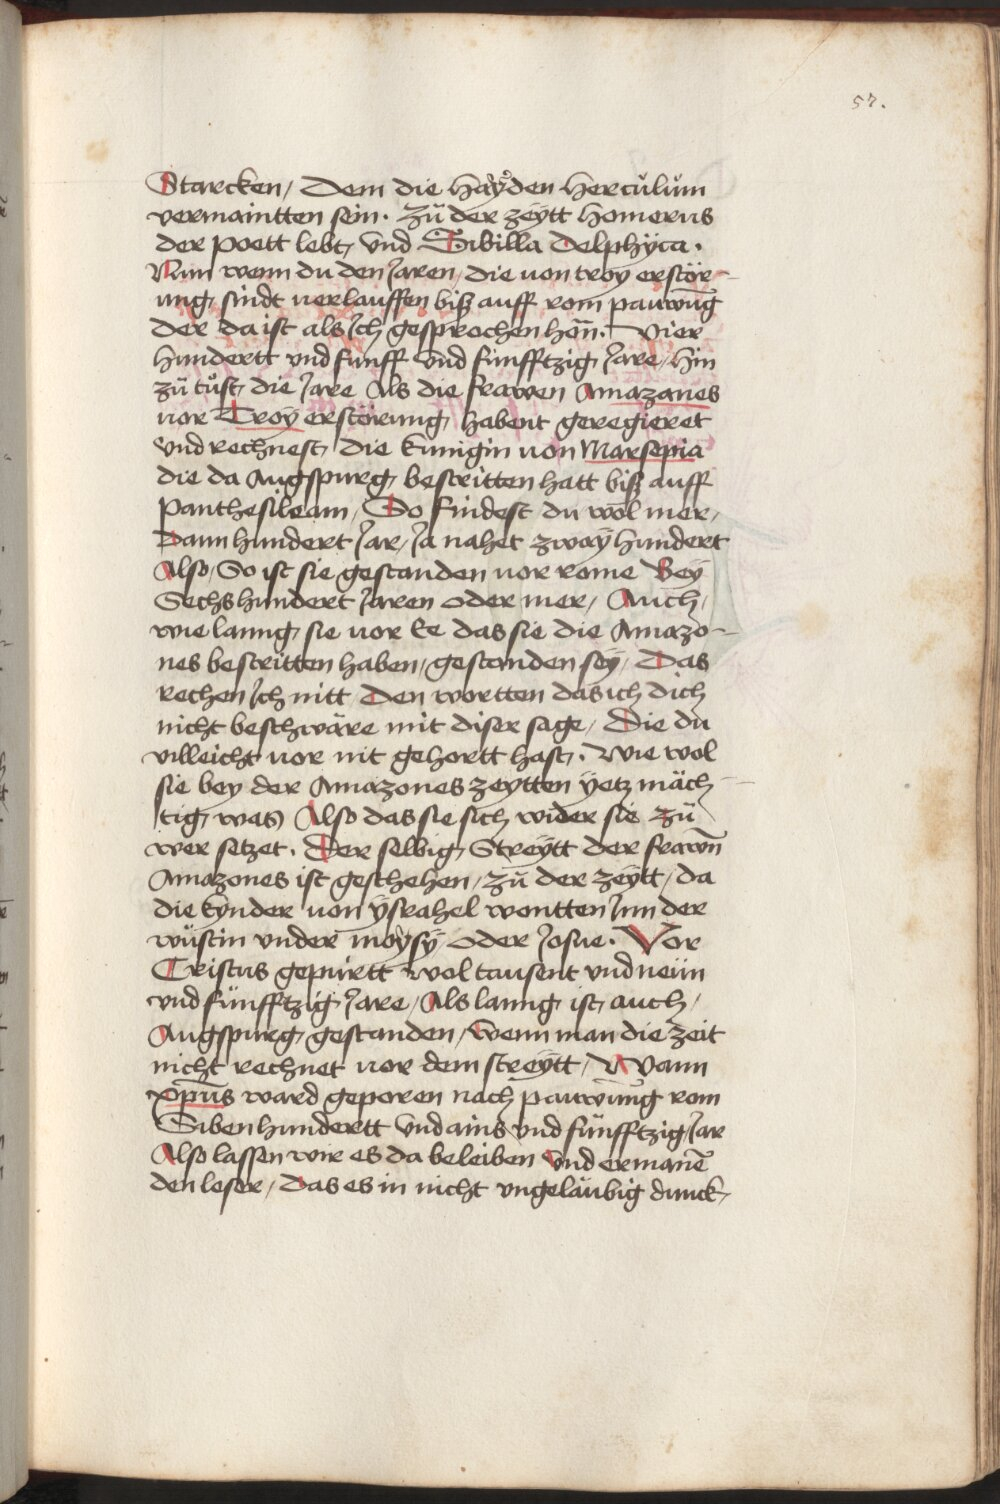 57.
Starcken / Dem die haÿden Hercŭlŭm
vermaintten sein · Zŭ der zeÿtt homerus
der poett lebt, vnd Sibilla Delphÿca ·
Nun wenn du den Jaren / die von troy erstör-
ung, sindt verlauffen bisz auff rom pauwūg
der da ist als Jch gesprochen hān · Vier
hundertt vnd funff vnd fünfftzig, Jare / hin
zŭ tŭst, die Jare Als die frawen Amazanes
vor Troÿ erstörung, habent geregieret
vnd rechnest, die kunigin von Marsepia
die da Augspurg, bestritten hatt bisz auff
Panthesileam / So findest du wol mer /
Dann hundert Jar / Ja nahet zwaÿ hundert
Also / So ist sie gestanden vor rome Beÿ
Sechs hundert Jaren oder mer / Auch /
wie lanng, sie vor Ee das sie die Amazo-
nes bestritten haben / gestanden seÿ / Das
rechen Jch nitt / Den wortten das ich dich
nicht beschwäre mit diser sage / Die du
villeicht vor nit gehortt hast, · wie wol
sie bey der Amazones zeytten ÿetz mäch-
tig, was) Also das sie sich wider sie zŭ
wer setzet · Der selbig, Streÿtt der frawn̄
Amazones ist geschehen / zŭ der zeÿtt / da
die kÿnder von ÿsrahel wontten Jnn der
wŭstin vnder moÿsÿ oder Josue · Vor
Cristus gepŭrtt wol tausent vnd neün
vnd fünfftzig, Jare / Als lanng, ist, auch /
Augspurg, gestanden / wenn man die zeit
nicht rechnet vor dem streÿtt / Wann
xp̄us ward geporen nach pauwūng rom
Siben hundertt vnd ains vnd fŭnfftzig, Jar
Also lassen wir es da beleiben vnd ermanē
den leser / Das es in nicht vngeläubig dunck,